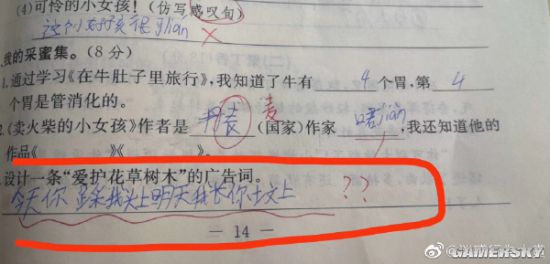 (4)可怜的小女孩!(仿写感叹句)
这个女孩真很lián
我的采蜜集。(8分)
1.通过学习《在牛肚子里旅行》,我知道了牛有 4 个胃,第 4
个胃是管消化的。
麦
(卖火柴的小女孩》作者是 丹麦 (国家)作家 ,我还知道他的
作品《 》《 》
设计一条“爱护花草树木”的广告词。
今天你踩我头上明天我长你土文上 ??
— 14 —
GAMERSKY